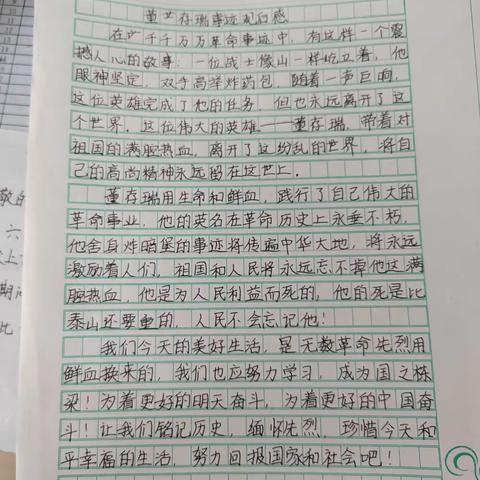 董存瑞事迹观后感
在千千万万革命事迹中，有这样一个震
撼人心的故事：一位战士像山一样屹立着，他
眼神坚定，双手高举炸药包，随着一声巨响，
这位英雄完成了他的任务，但也永远离开了这
个世界。这位伟大的英雄——董存瑞，带着对
祖国的满腔热血，离开了这纷乱的世界，将自
己的高尚精神永远留在这世上。
董存瑞用生命和鲜血，践行了自己伟大的
革命事业，他的英名在革命历史上永垂不朽，
他舍身炸暗堡的事迹将传遍中华大地，将永远
激励着人们，祖国和人民将永远忘不掉他这满
腔热血，他是为人民利益而死的，他的死是比
泰山还要重的，人民不会忘记他！
我们今天的美好生活，是无数革命先烈用
鲜血换来的，我们也应努力学习，成为国之栋
梁！为着更好的明天奋斗，为着更好的中国奋
斗！让我们铭记历史，缅怀先烈，珍惜今天和
平幸福的生活，努力回报国家和社会吧！
敬的
六
上
期
比